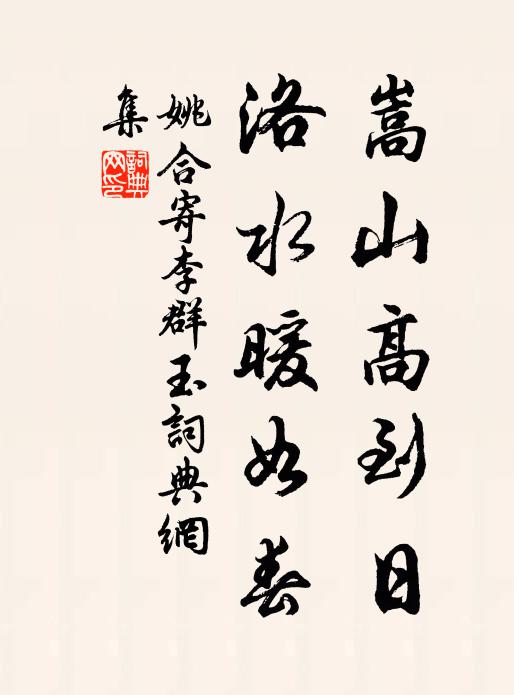 嵩山高到日
洛水暖如春
姚合寄李群玉詞典網
集
詞典網印